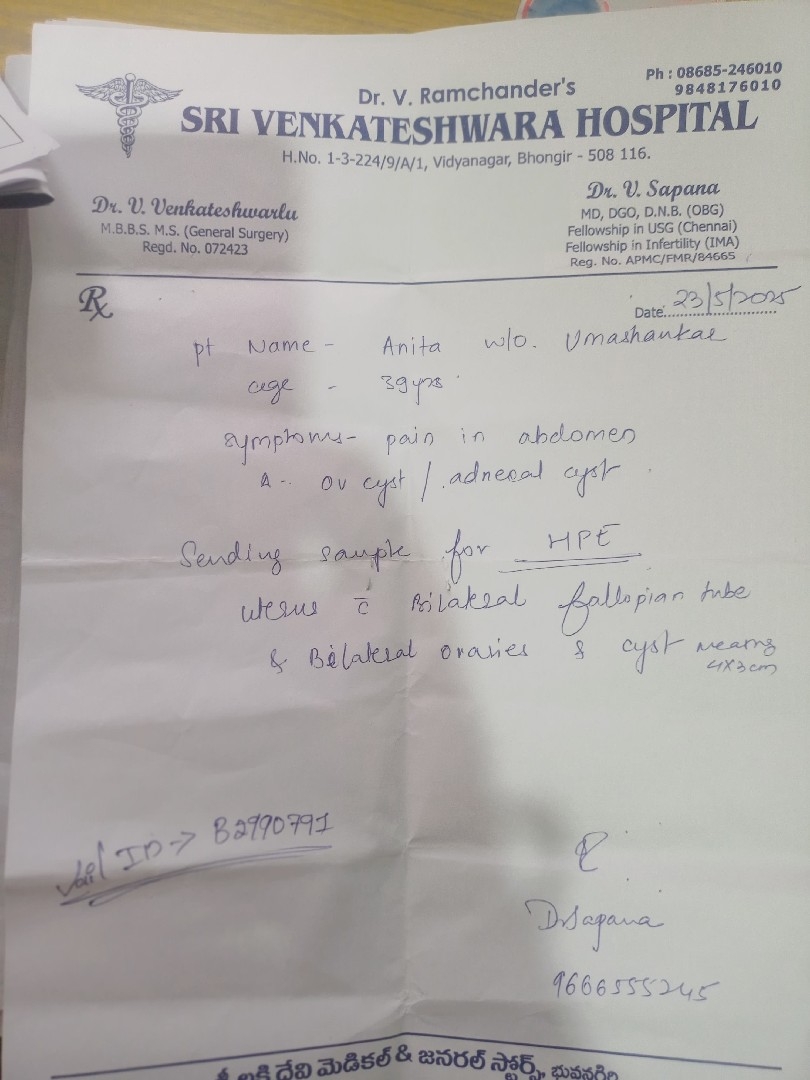 Ph : 08685-246010
9848176010
Dr. V. Ramchander's
SRI VENKATESHWARA HOSPITAL
H.No. 1-3-224/9/A/1, Vidyanagar, Bhongir - 508 116.
Dr. V. Venkateshwarlu
M.B.B.S. M.S. (General Surgery)
Regd. No. 072423
Dr. V. Sapana
MD, DGO, D.N.B. (OBG)
Fellowship in USG (Chennai)
Fellowship in Infertility (IMA)
Reg. No. APMC/FMR/84665
Rx
Date: 23/5/2025
pt Name - Anita w/o. Umashankar
age - 39yrs
symptoms - pain in abdomen
A - ov cyst / adnexal cyst
Sending sample for HPE
uterus c̄ Bilateral fallopian tube
& Bilateral ovaries & cyst
4x3cm
Vail ID → B2990791
Dr Sapana
9666555245
దేవి మెడికల్ & జనరల్ స్టోర్స్, భువనగిరి